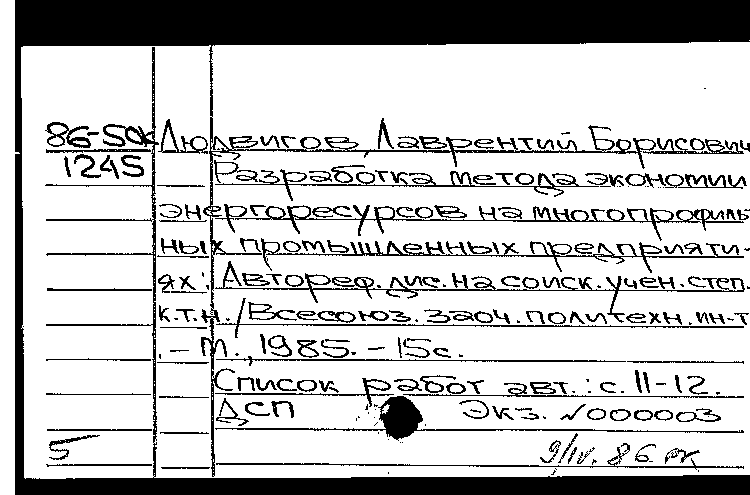 86-5ОК Людвигов, Лаврентий Борисович
1245 Разработка метода экономии
энергоресурсов на многопрофиль
ных промышленных предприяти-
ях: Автореф. дис. на соиск. учен. степ.
к.т.н. / Всесоюз. заоч. политехн. ин-т
. – М., 1985. – 15с.
Список работ авт.: с. 11-12.
ДСП Экз. №000003
5 9/IV. 86